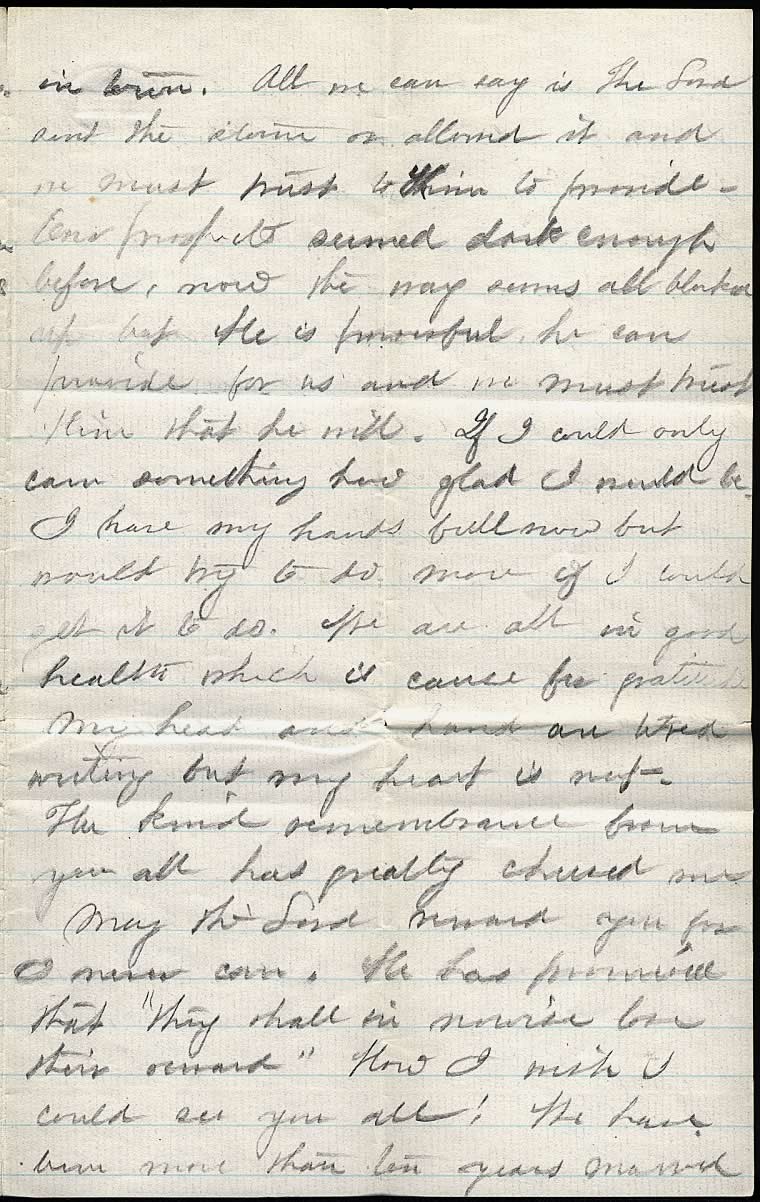 in town. All we can say is the Lord
sent the storm or allowed it and
we must trust to Him to provide -
Our prospects seemed dark enough
before, now the way seems all blocked
up but He is powerful, he can
provide for us and we must trust
Him that he will. If I could only
earn something how glad I would be.
I have my hands full now but
would try to do more if I could
get it to do. We are all in good
health which is cause for gratitude
My head and hand are tired
writing but my heart is not -.
The kind remembrance from
you all has greatly cheered me
May the Lord reward you for
I never can. He has promised
that "they shall in nowise lose
their reward" How I wish I
could see you all! We have
been more than ten years married